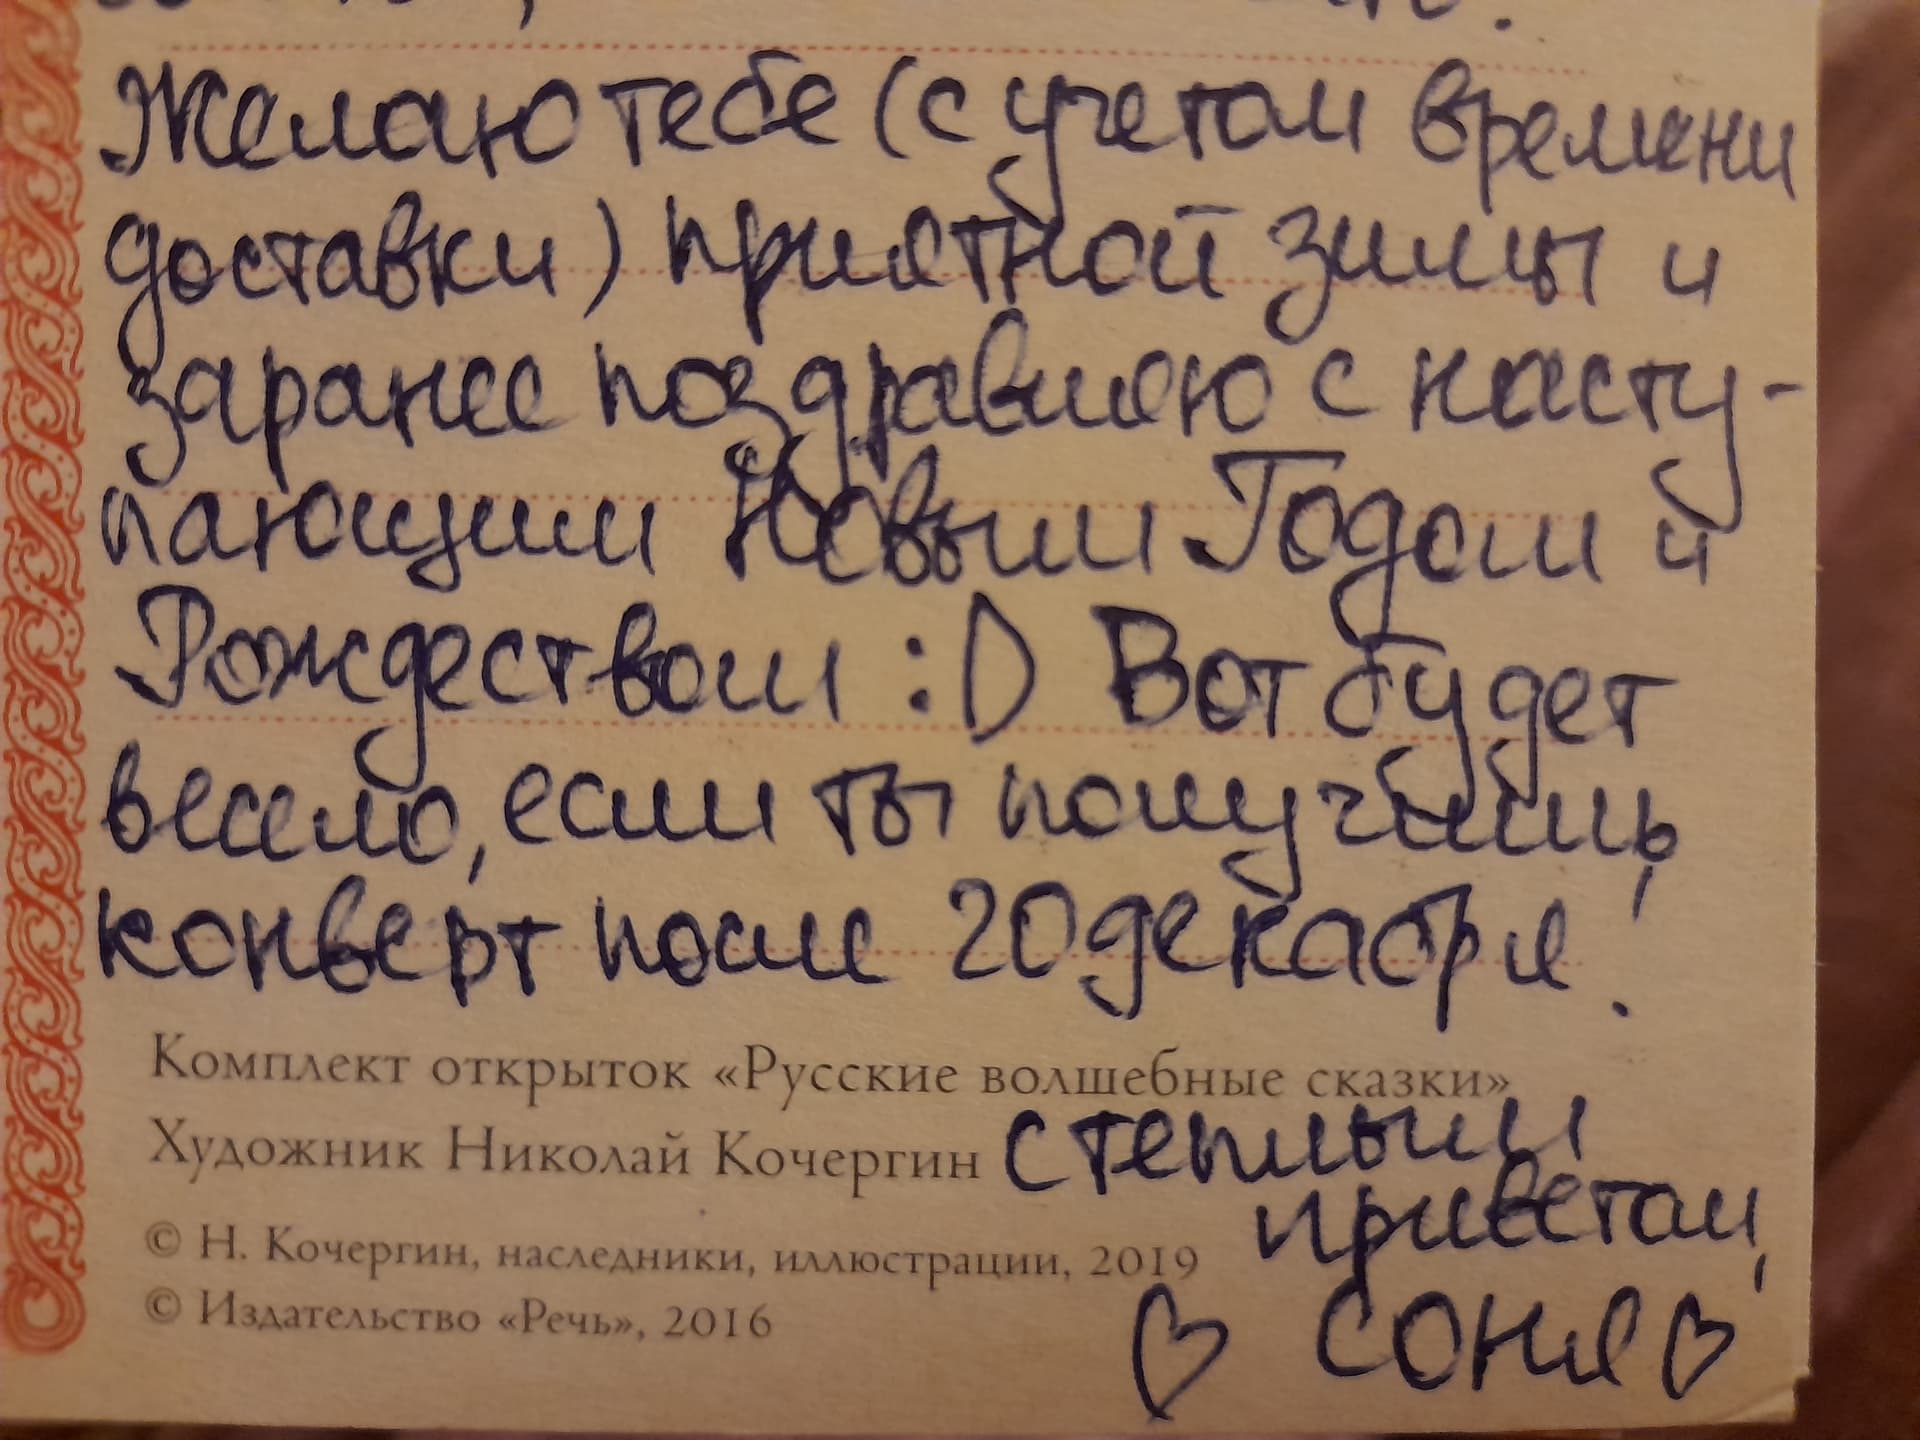 Желаю тебе (с учетом времени
доставки) приятной зимы и
заранее поздравляю с насту-
пающим Новым Годом и
Рождеством :D Вот будет
весело, если ты получишь
конверт после 20 декабря!
Комплект открыток «Русские волшебные сказки»
Художник Николай Кочергин
с теплым
приветом,
© Н. Кочергин, наследники, иллюстрации, 2019
© Издательство «Речь», 2016
♡ Соня ♡